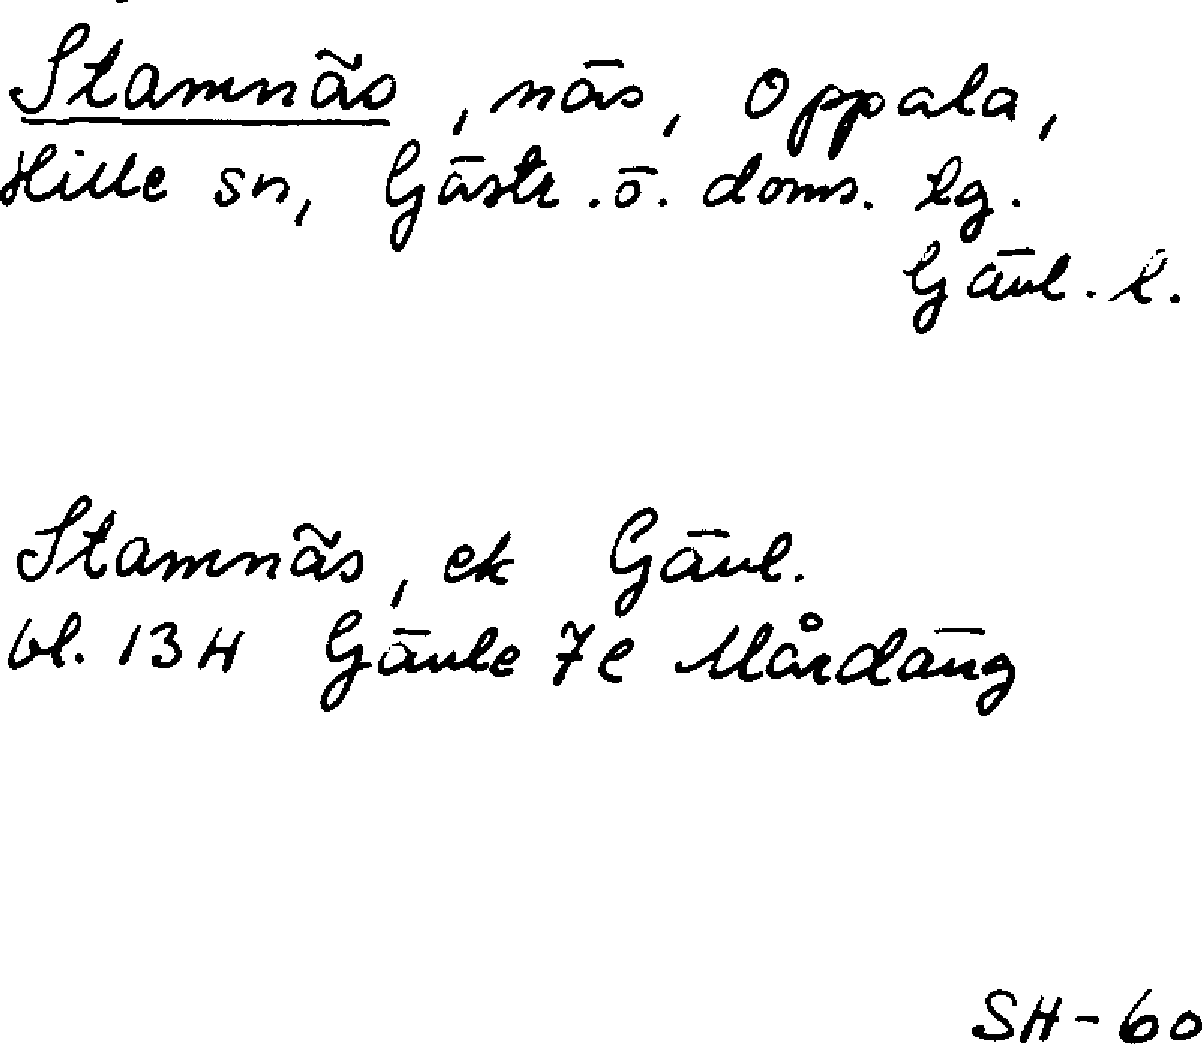 Stamnäs, näs, Oppala,
Hille sn, Gästr. ö. doms. lg.
Gävl. l.
Stamnäs, ek Gävl.
bl. 13 H Gävle 7e Mårdäng
SH-60